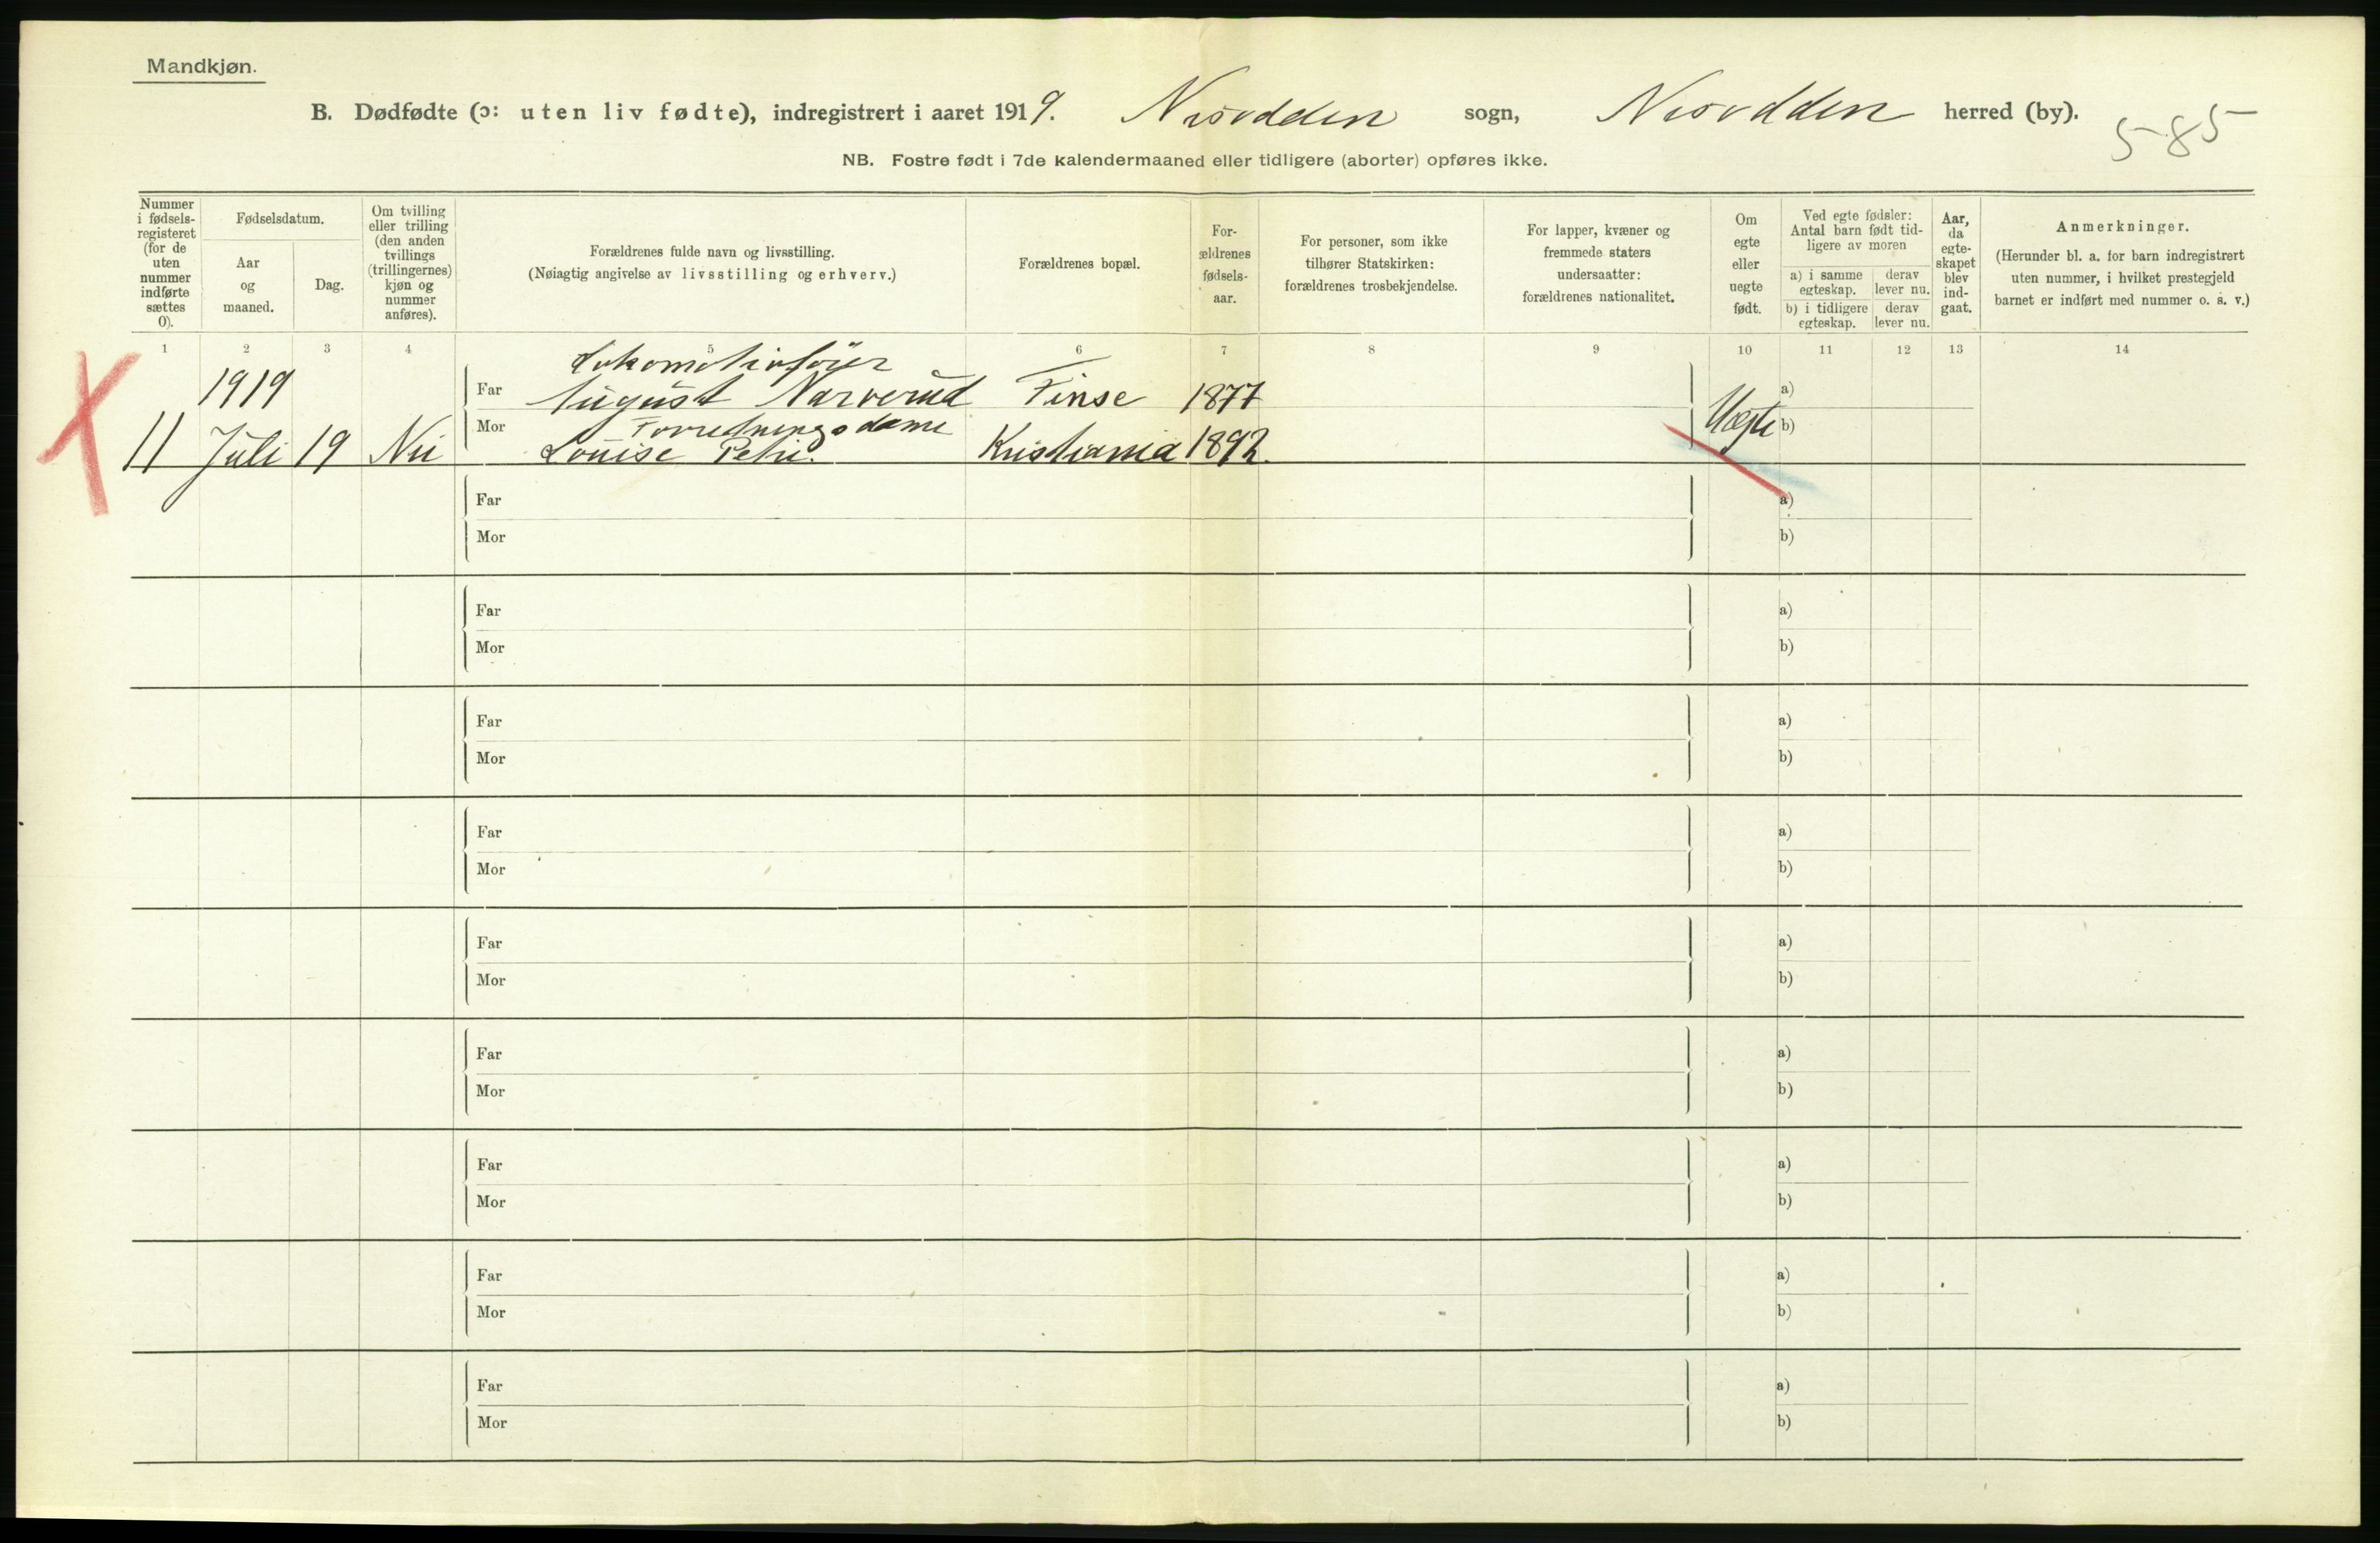 Mandkjøn.
B. Dødfødte (ɔ: uten liv fødte), indregistrert i aaret 1919. Nesodden sogn, Nesodden herred (by). 585
NB. Fostre født i 7de kalendermaaned eller tidligere (aborter) opføres ikke.
Nummer i fødsels-registeret (for de uten nummer indførte sættes 0).
Fødselsdatum.
Aar og maaned.
Dag.
Om tvilling eller trilling (den anden tvillings (trillingernes) kjøn og nummer anføres).
Forældrenes fulde navn og livsstilling.
(Nøiagtig angivelse av livsstilling og erhverv.)
Forældrenes bopæl.
For-ældrenes fødsels-aar.
For personer, som ikke tilhører Statskirken: forældrenes trosbekjendelse.
For lapper, kvæner og fremmede staters undersaatter: forældrenes nationalitet.
Om egte eller uegte født.
Ved egte fødsler: Antal barn født tid-ligere av moren
a) i samme egteskap.
derav lever nu.
b) i tidligere egteskap.
derav lever nu.
Aar, da egte-skapet blev ind-gaat.
Anmerkninger.
(Herunder bl. a. for barn indregistrert uten nummer, i hvilket prestegjeld barnet er indført med nummer o. s. v.)
1 2 3 4 5 6 7 8 9 10 11 12 13 14
Lokomotivføjer
1919 Far August Narverud Finse 1877 a)
Mor Forretningsdame Uegte b)
11 Juli 19 Nei Louise Petri. Kristiania 1892.
Far a)
Mor b)
Far a)
Mor b)
Far a)
Mor b)
Far a)
Mor b)
Far a)
Mor b)
Far a)
Mor b)
Far a)
Mor b)
Far a)
Mor b)
Far a)
Mor b)